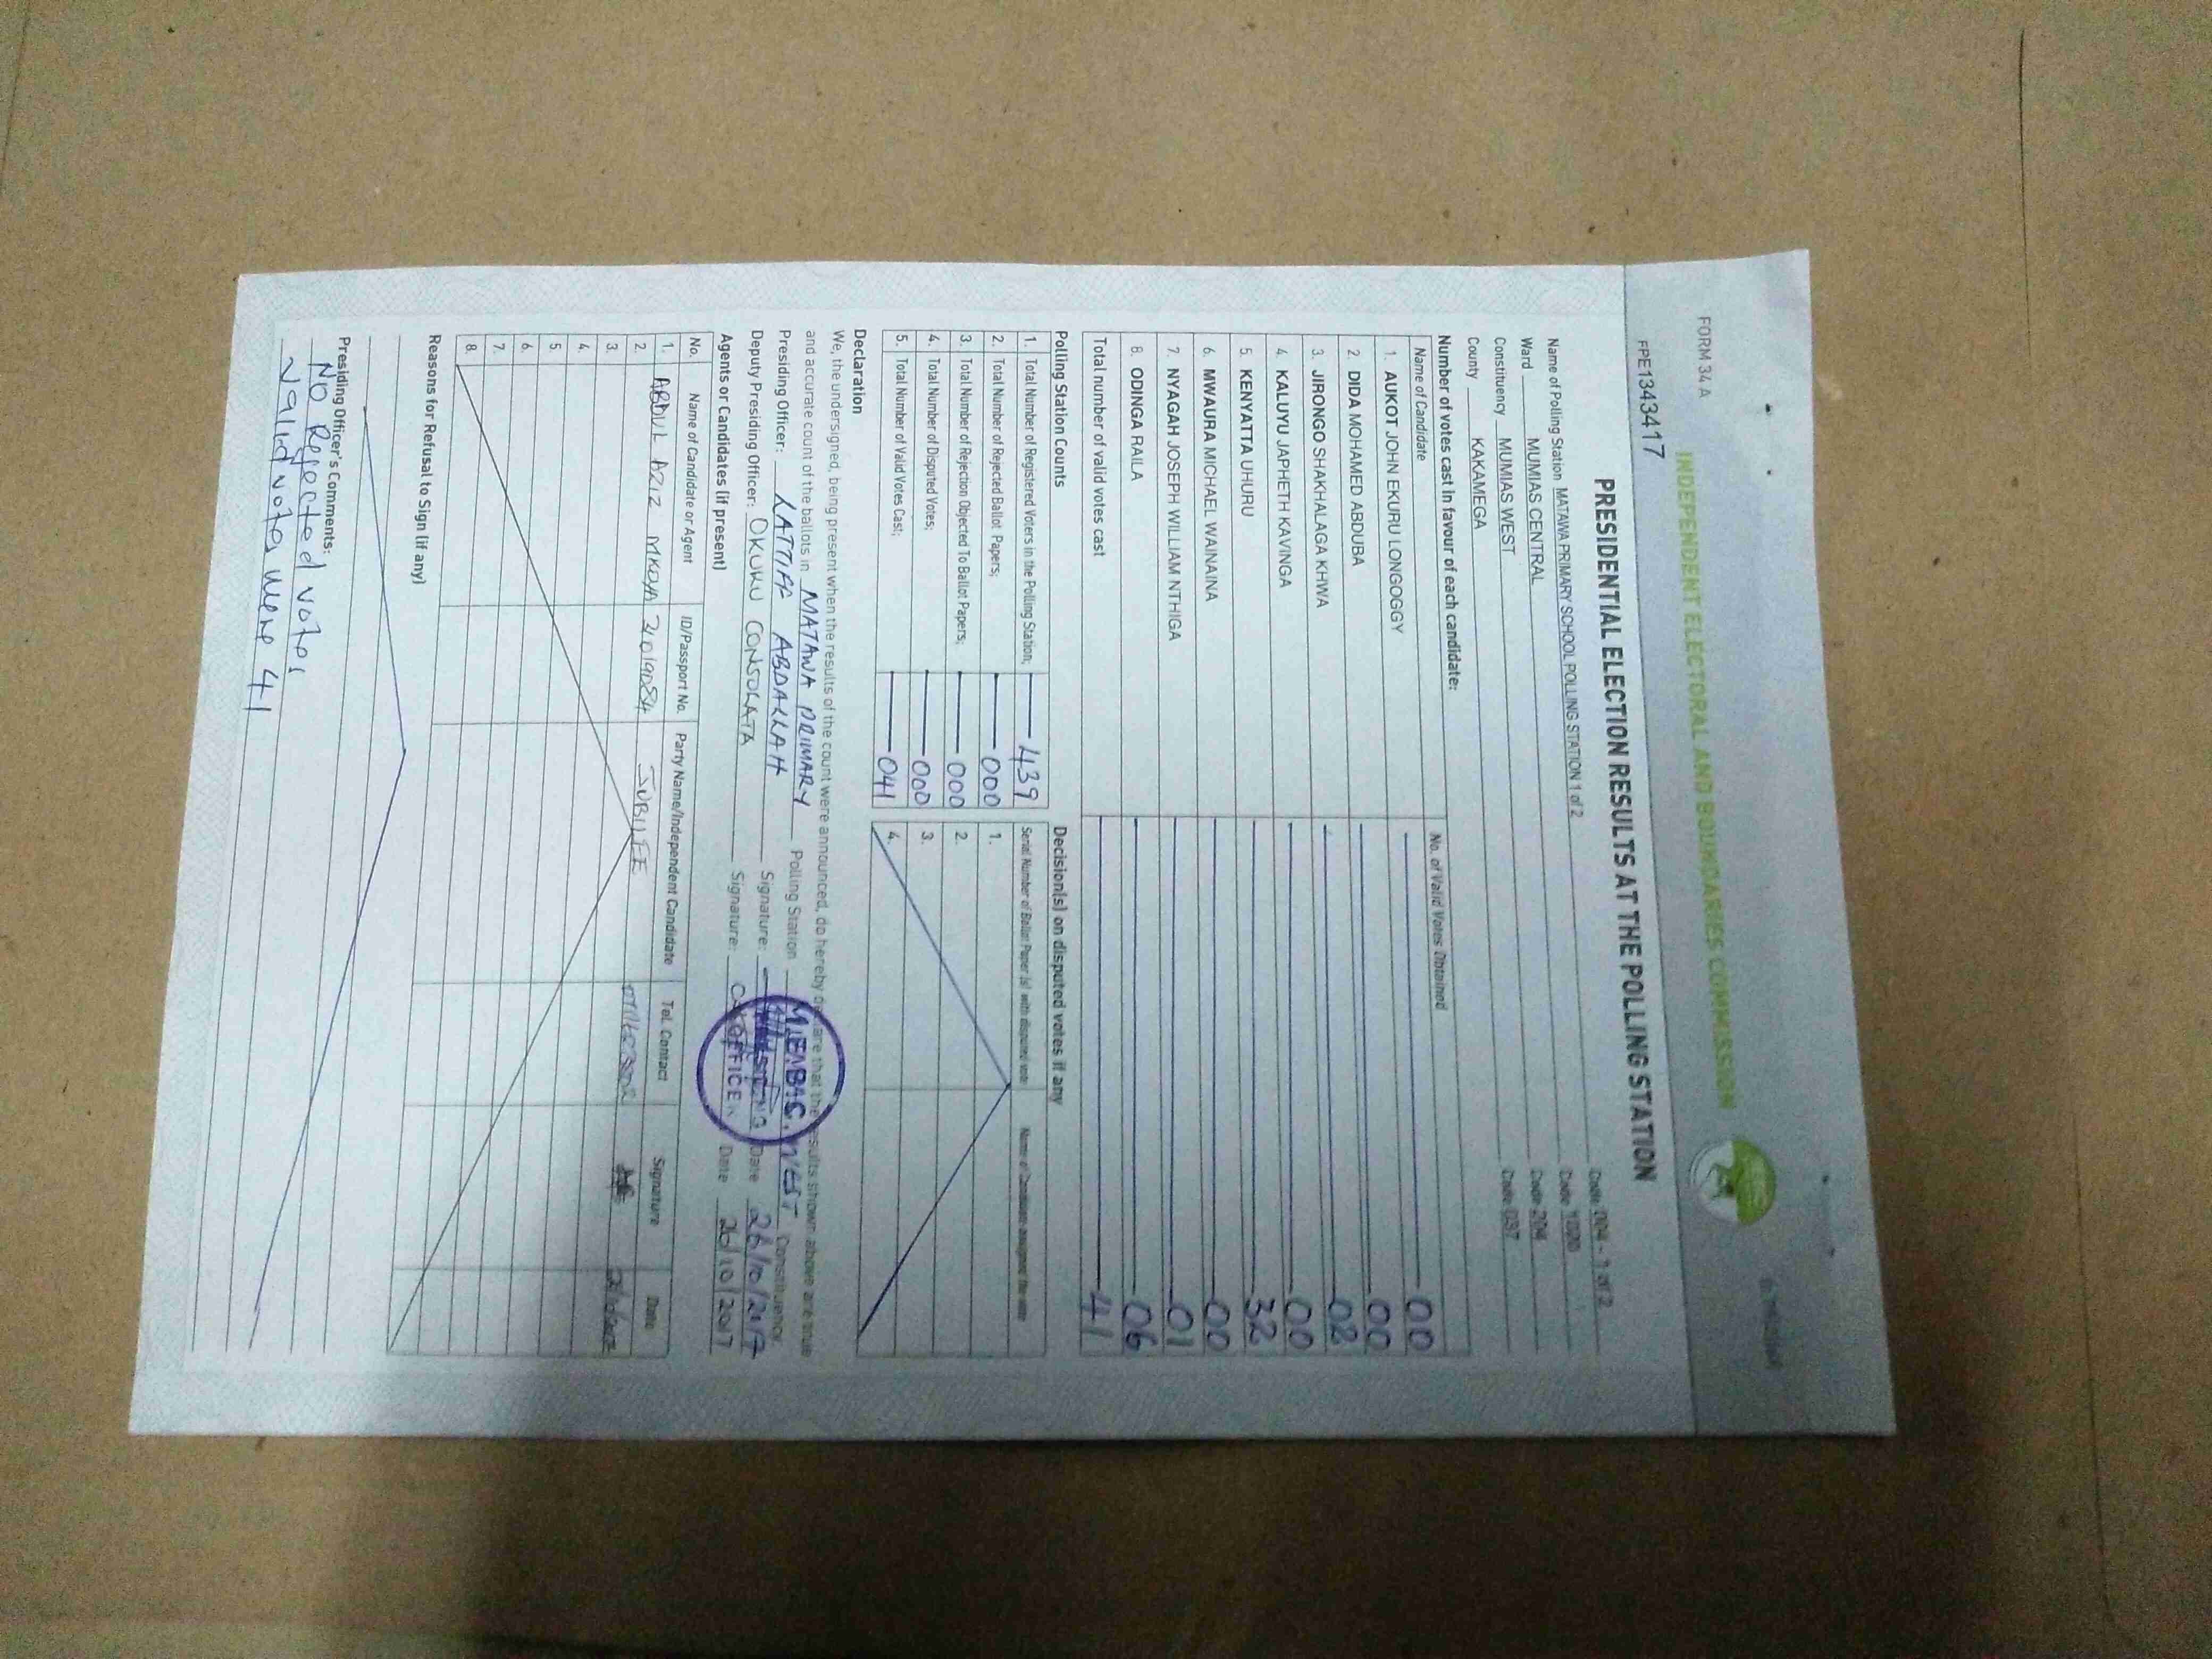 FORM 34 A
INDEPENDENT ELECTORAL AND BOUNDARIES COMMISSION
FPE1343417
PRESIDENTIAL ELECTION RESULTS AT THE POLLING STATION
Name of Polling Station MATAWA PRIMARY SCHOOL POLLING STATION 1 of 2 Code 004 - 1 of 2
Ward MUMIAS CENTRAL Code 1020
Constituency MUMIAS WEST Code 204
County KAKAMEGA Code 037
Number of votes cast in favour of each candidate:
Name of Candidate No. of Valid Votes Obtained
1. AUKOT JOHN EKURU LONGOGGY 00
2. DIDA MOHAMED ABDUBA 00
3. JIRONGO SHAKHALAGA KHWA 02
4. KALUYU JAPHETH KAVINGA 00
5. KENYATTA UHURU 32
6. MWAURA MICHAEL WAINAINA 00
7. NYAGAH JOSEPH WILLIAM NTHIGA 01
8. ODINGA RAILA 06
Total number of valid votes cast 41
Polling Station Counts
1. Total Number of Registered Voters in the Polling Station; 439
2. Total Number of Rejected Ballot Papers; 000
3. Total Number of Rejection Objected To Ballot Papers; 000
4. Total Number of Disputed Votes; 000
5. Total Number of Valid Votes Cast; 041
Decision(s) on disputed votes if any
Serial Number of Ballot Paper (s) with disputed vote Name of Candidate assigned the vote
1.
2.
3.
4.
Declaration
We, the undersigned, being present when the results of the count were announced, do hereby declare that the results shown above are true
and accurate count of the ballots in MATAWA PRIMARY Polling Station MUMIAS WEST Constituency.
Presiding Officer: LATTIFF ABDALLAH Signature: Date 26/10/2017
Deputy Presiding Officer: OKUKU CONSOLATA Signature: Date 26/10/2017
IEBC
PRESIDING
OFFICER
Agents or Candidates (if present)
No. Name of Candidate or Agent ID/Passport No. Party Name/Independent Candidate Tel. Contact Signature Date
1. ABDUL AZIZ MKOYA JUBILEE
2.
3.
4.
5.
6.
7.
8.
Reasons for Refusal to Sign (if any)
Presiding Officer's Comments:
NO Rejected votes
Valid votes were 41